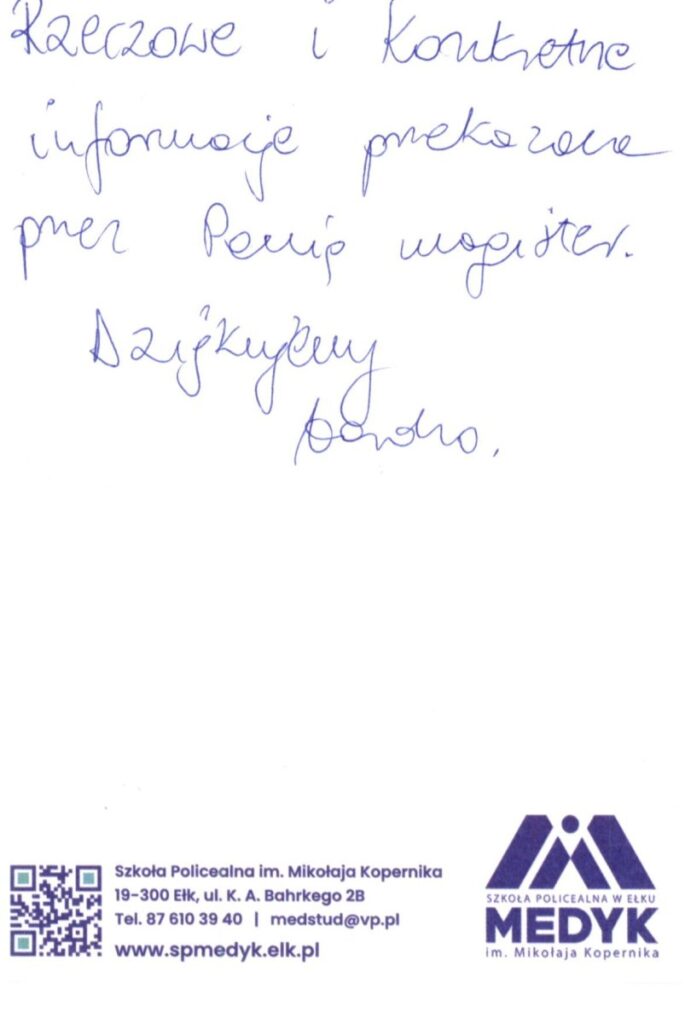 Rzeczowe i Konkretne
informacje przekazane
przez Panią magister.
Dziękujemy
bardzo.
Szkoła Policealna im. Mikołaja Kopernika
19-300 Ełk, ul. K. A. Bahrkego 2B
Tel. 87 610 39 40 | medstud@vp.pl
www.spmedyk.elk.pl
SZKOŁA POLICEALNA W EŁKU
MEDYK
im. Mikołaja Kopernika